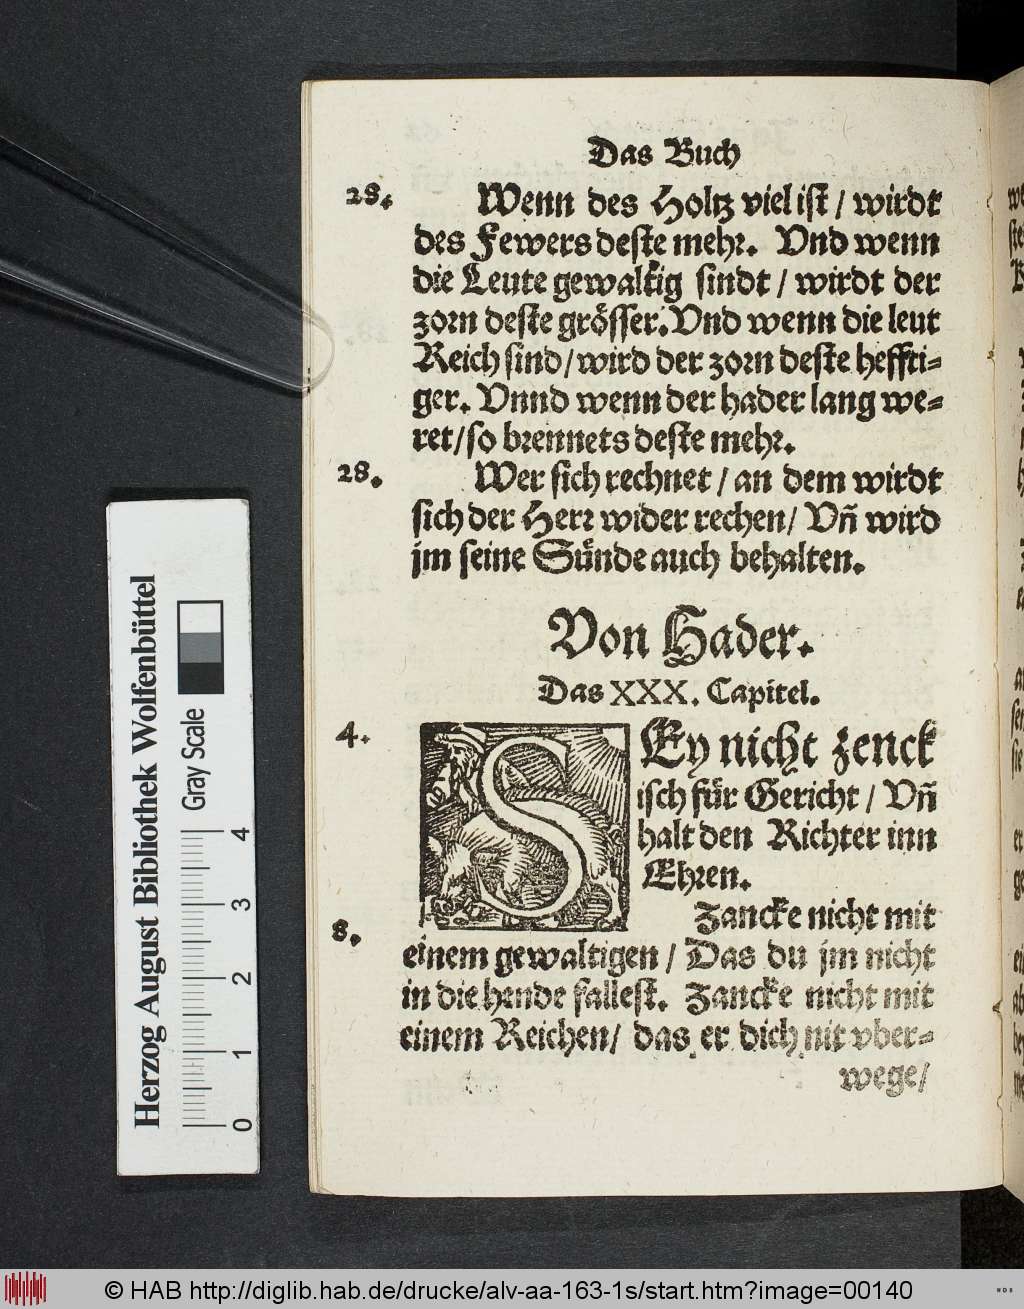 Das Buch
28. Wenn des Holtz viel ist / wirdt
des Fewers deste mehr. Vnd wenn
die Leute gewaltig sindt / wirdt der
zorn deste grösser. Vnd wenn die leut
Reich sind / wird der zorn deste heffti=
ger. Vnnd wenn der hader lang we=
ret / so brennets deste mehr.
28. Wer sich rechnet / an dem wirdt
sich der Herr wider rechen / Vñ wird
jm seine Sünde auch behalten.
Von Hader.
Das XXX. Capitel.
4. SEy nicht zenck
isch für Gericht / Vñ
halt den Richter inn
Ehren.
8. Zancke nicht mit
einem gewaltigen / Das du jm nicht
in die hende fallest. Zancke nicht mit
einem Reichen / das er dich nit vber=
wege /
Herzog August Bibliothek Wolfenbüttel
Gray Scale
0 1 2 3 4
© HAB http://diglib.hab.de/drucke/alv-aa-163-1s/start.htm?image=00140